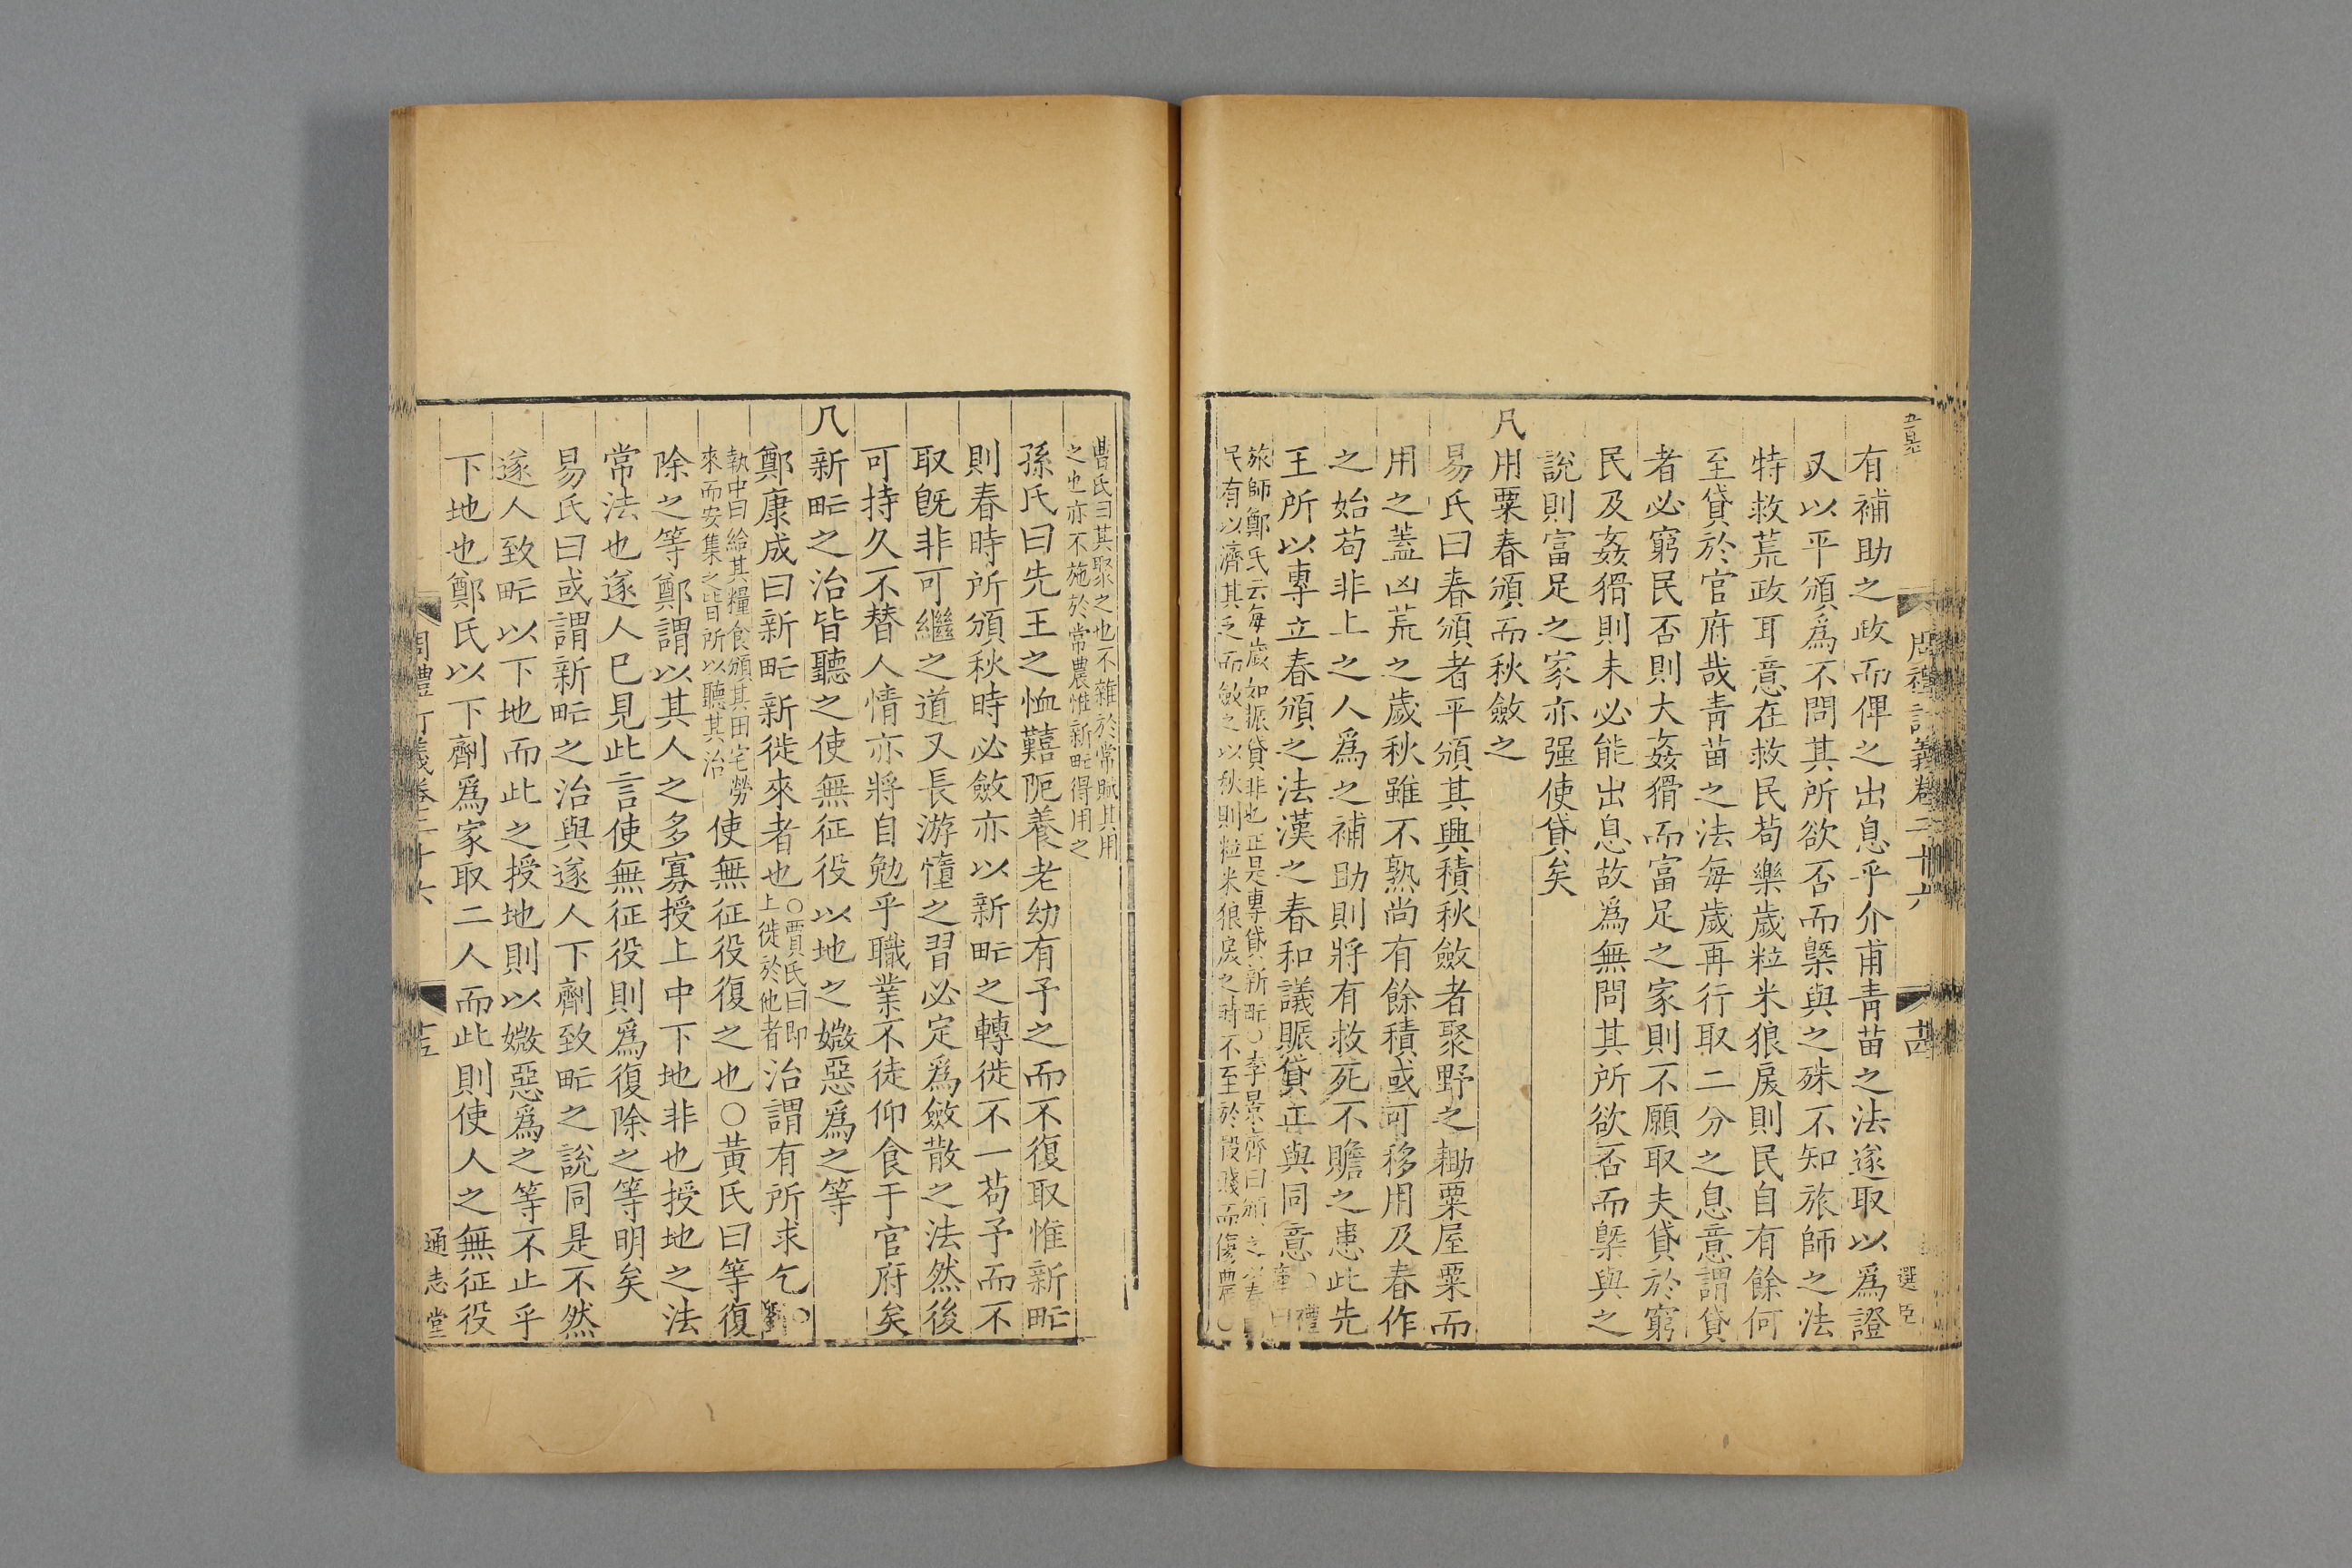 有補助之政而俾之出息乎介甫青苗之法遂取以爲證
又以平頒爲不問其所欲否而槩與之殊不知旅師之法
特救荒政耳意在救民茍樂歲粒米狼戾則民自有餘何
至貸於官府哉青苗之法每歲再行取二分之息意謂貸
者必窮民否則大姦猾而富足之家則不願取夫貸於窮
民及姦猾則未必能出息故爲無問其所欲否而槩與之
說則富足之家亦强使貸矣
凡用粟春頒而秋斂之
易氏曰春頒者平頒其興積秋斂者聚野之耡粟屋粟而
用之蓋凶荒之歲秋雖不熟尚有餘積或可移用及春作
之始茍非上之人爲之補助則將有救死不贍之患此先
王所以專立春頒之法漢之春和議賑貸正與同意
旅師鄭氏云每歲如振貸非也正是專貸新甿○李景齊曰頒之以春
民有以濟其乏而斂之以秋則粒米狼戾之時不至於賤而傷農○
曹氏曰其聚之也不雜於常賦其用
之也亦不施於常農惟新甿得用之
孫氏曰先王之恤囏阨養老幼有予之而不復取惟新甿
則春時所頒秋時必斂亦以新甿之轉徙不一茍予而不
取旣非可繼之道又長游憧之習必定爲斂散之法然後
可持久不替人情亦將自勉乎職業不徒仰食于官府矣
凡新甿之治皆聽之使無征役以地之媺惡爲之等
鄭康成曰新甿新徙來者也○賈氏曰即上徙於他者治謂有所求乞○劉
執中曰給其糧食頒其田宅勞來而安集之皆所以聽其治使無征役復之也○黃氏曰等復
除之等鄭謂以其人之多寡授上中下地非也授地之法
常法也遂人已見此言使無征役則爲復除之等明矣
易氏曰或謂新甿之治與遂人下劑致甿之說同是不然
遂人致甿以下地而此之授地則以媺惡爲之等不止乎
下地也鄭氏以下劑爲家取二人而此則使人之無征役
周禮訂義卷二十六
通志堂